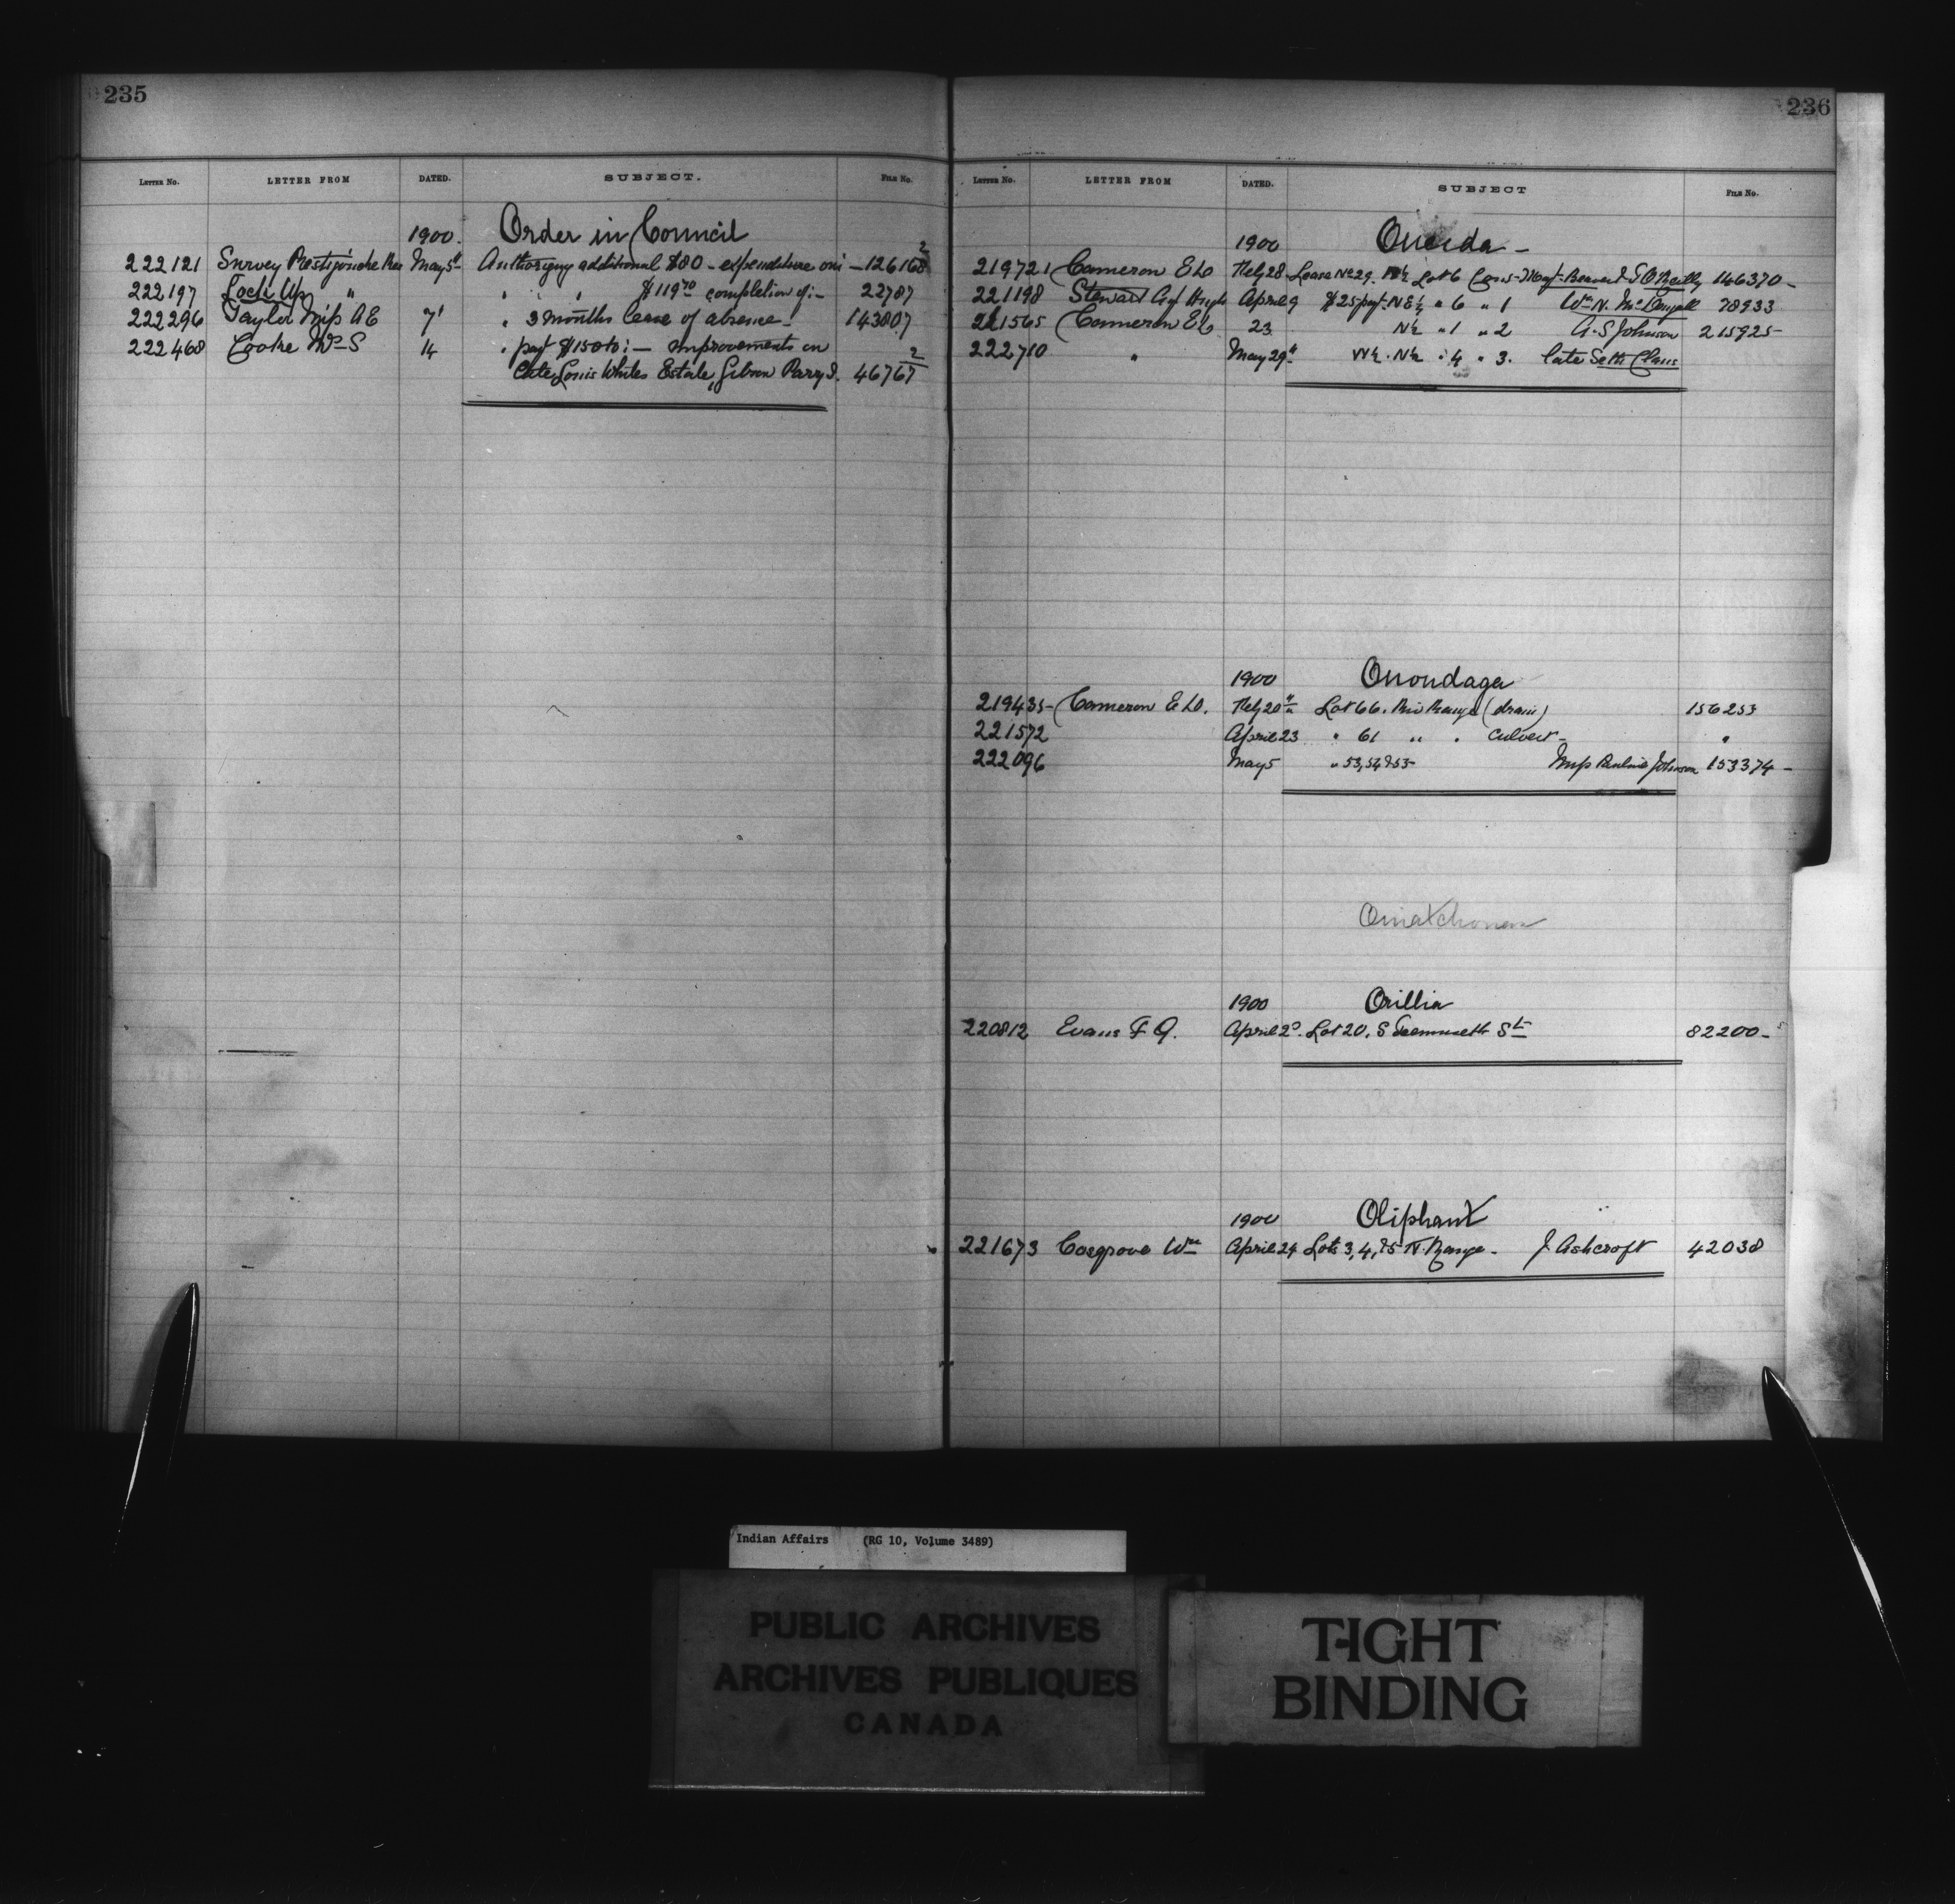 235
LETTER NO. LETTER FROM DATED. SUBJECT. FILE No.
1900. Order in Council
222121 Survey Restigouche Res May 5th Authorizing additional $80 - expenditure on:- 126168 2
222197 Lock Up " " " $119 70 completion of:- 22787
222296 Taylor Miss A E 7th " 3 months leave of absence - 143807
222468 Cooke Wm S 14 " payt $150 to:- improvements on
late Louis Whites Estate, Gibson Parry S. 46767 2
236
LETTER NO. LETTER FROM DATED. SUBJECT FILE No.
1900 Oneida -
219721 Cameron E D Feby 28 Lease No 29. Lot 6 146370 -
221198 Stewart Hugh April 9 $25 payt - N E ¼ " 6 " 1 Wm N. 78933
221565 Cameron E D 23 N½ " 1 " 2 A. S Johnson 215925
222710 " May 29th W½ . N½ " 4 " 3. late Seth Claus
1900 Onondaga
219435 Cameron E D. Feby 20th Lot 66. Riv Range (drain) 156253
221572 April 23 " 61 " " culvert - "
222096 May 5 " 53, 54 & 55 Miss Pauline Johnson 153374 -
1900 Orillia
220812 Evans F G. April 2. Lot 20, S St 82200 -
1900 Oliphant
221673 Cosgrove Wm April 24 Lots 3, 4, & 5 N. Range - J. Ashcroft 42038
Indian Affairs (RG 10, Volume 3489)
PUBLIC ARCHIVES
ARCHIVES PUBLIQUES
CANADA
TIGHT
BINDING